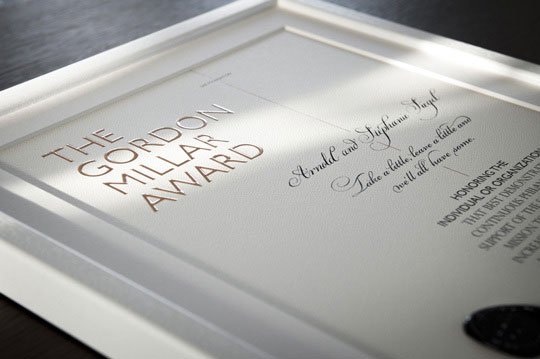 THE
GORDON
MILLAR
AWARD
Arnold and Stephanie
Take a little, leave a little and
we'll all have some.
HONORING THE
INDIVIDUAL OR ORGANIZATION
THAT BEST DEMONSTRA
CONTINUOUS PHILAN
SUPPORT OF THE
MISSION
INCREA